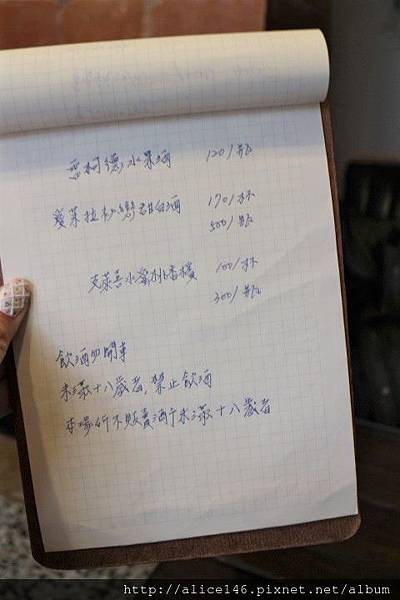 思柯德水果酒 120/瓶
愛菜拉紗戀甜白酒 170/杯
800/瓶
支萊善水蜜桃香檳 100/杯
300/瓶
飲酒勿開車
未滿十八歲者,禁止飲酒
本場所不販賣酒予未滿十八歲者
http://alice146.pixnet.net/album